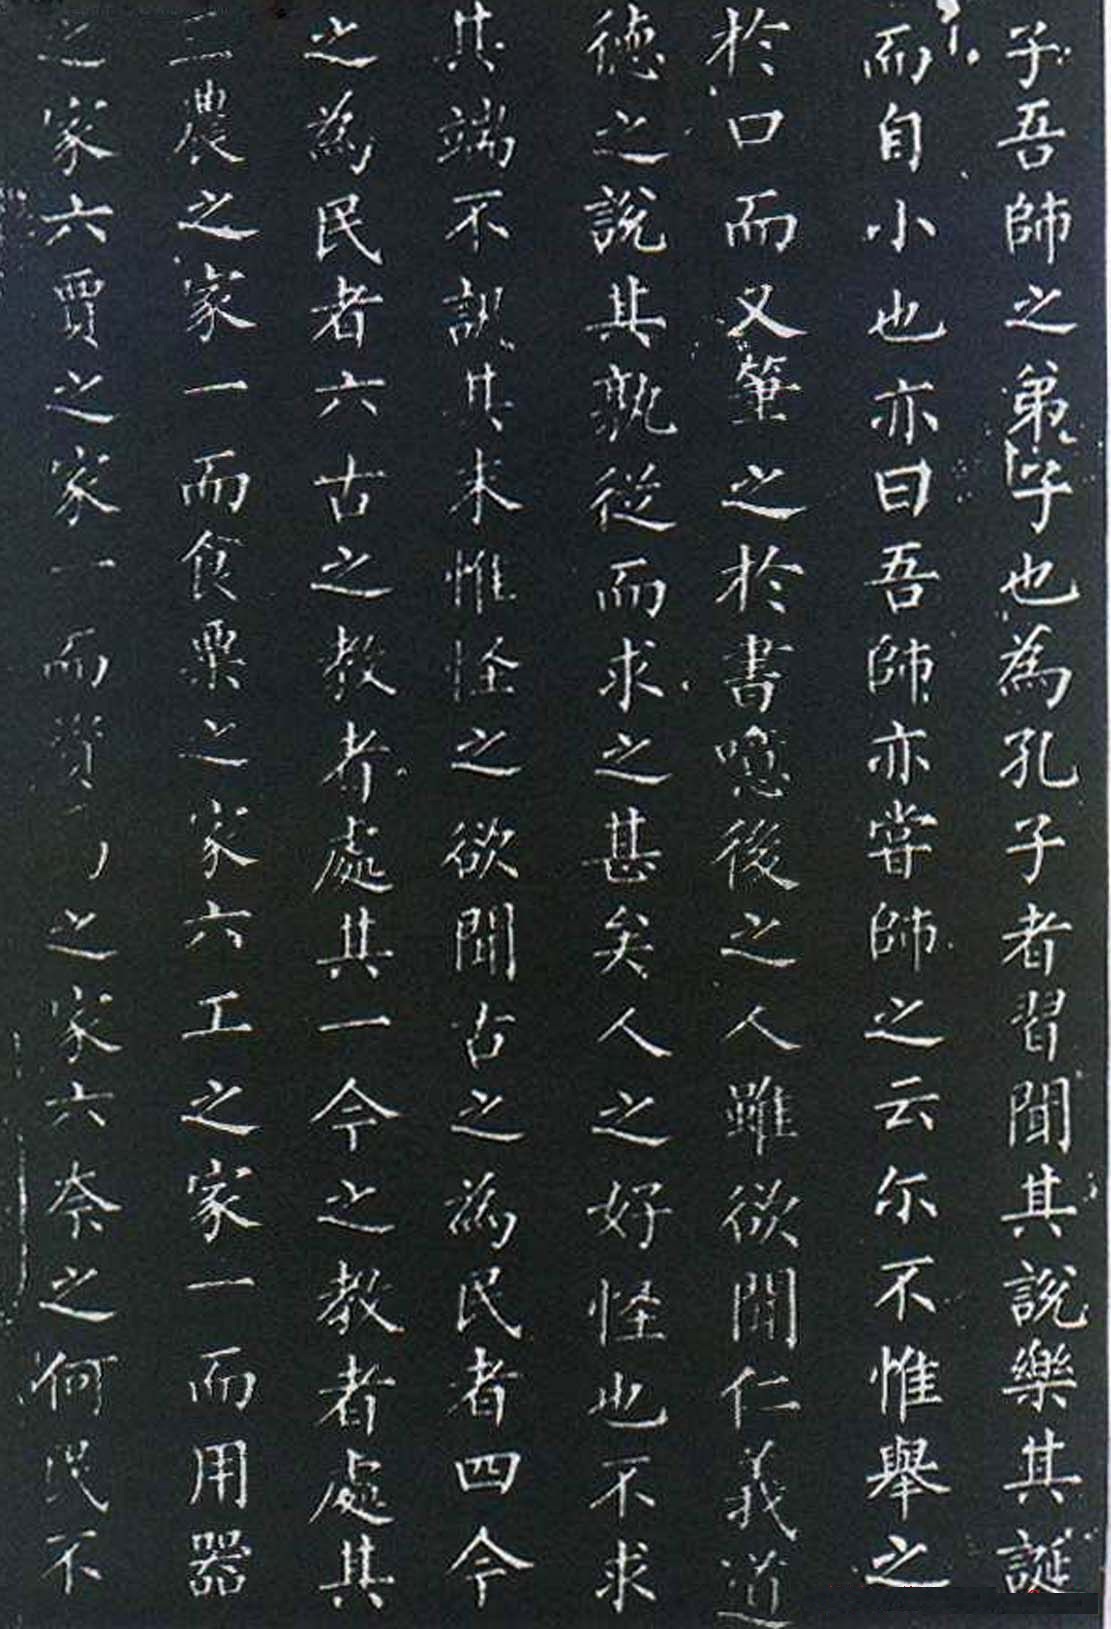 子吾師之弟子也為孔子者習聞其說樂其誕
而自小也亦曰吾師亦甞師之云尔不惟舉之
於口而又筆之於書噫後之人雖欲聞仁義道
德之說其孰從而求之甚矣人之好怪也不求
其端不訊其末惟怪之欲聞古之為民者四今
之為民者六古之教者處其一今之教者處其
三農之家一而食粟之家六工之家一而用器
之家六賈之家一而資之家六奈之何民不